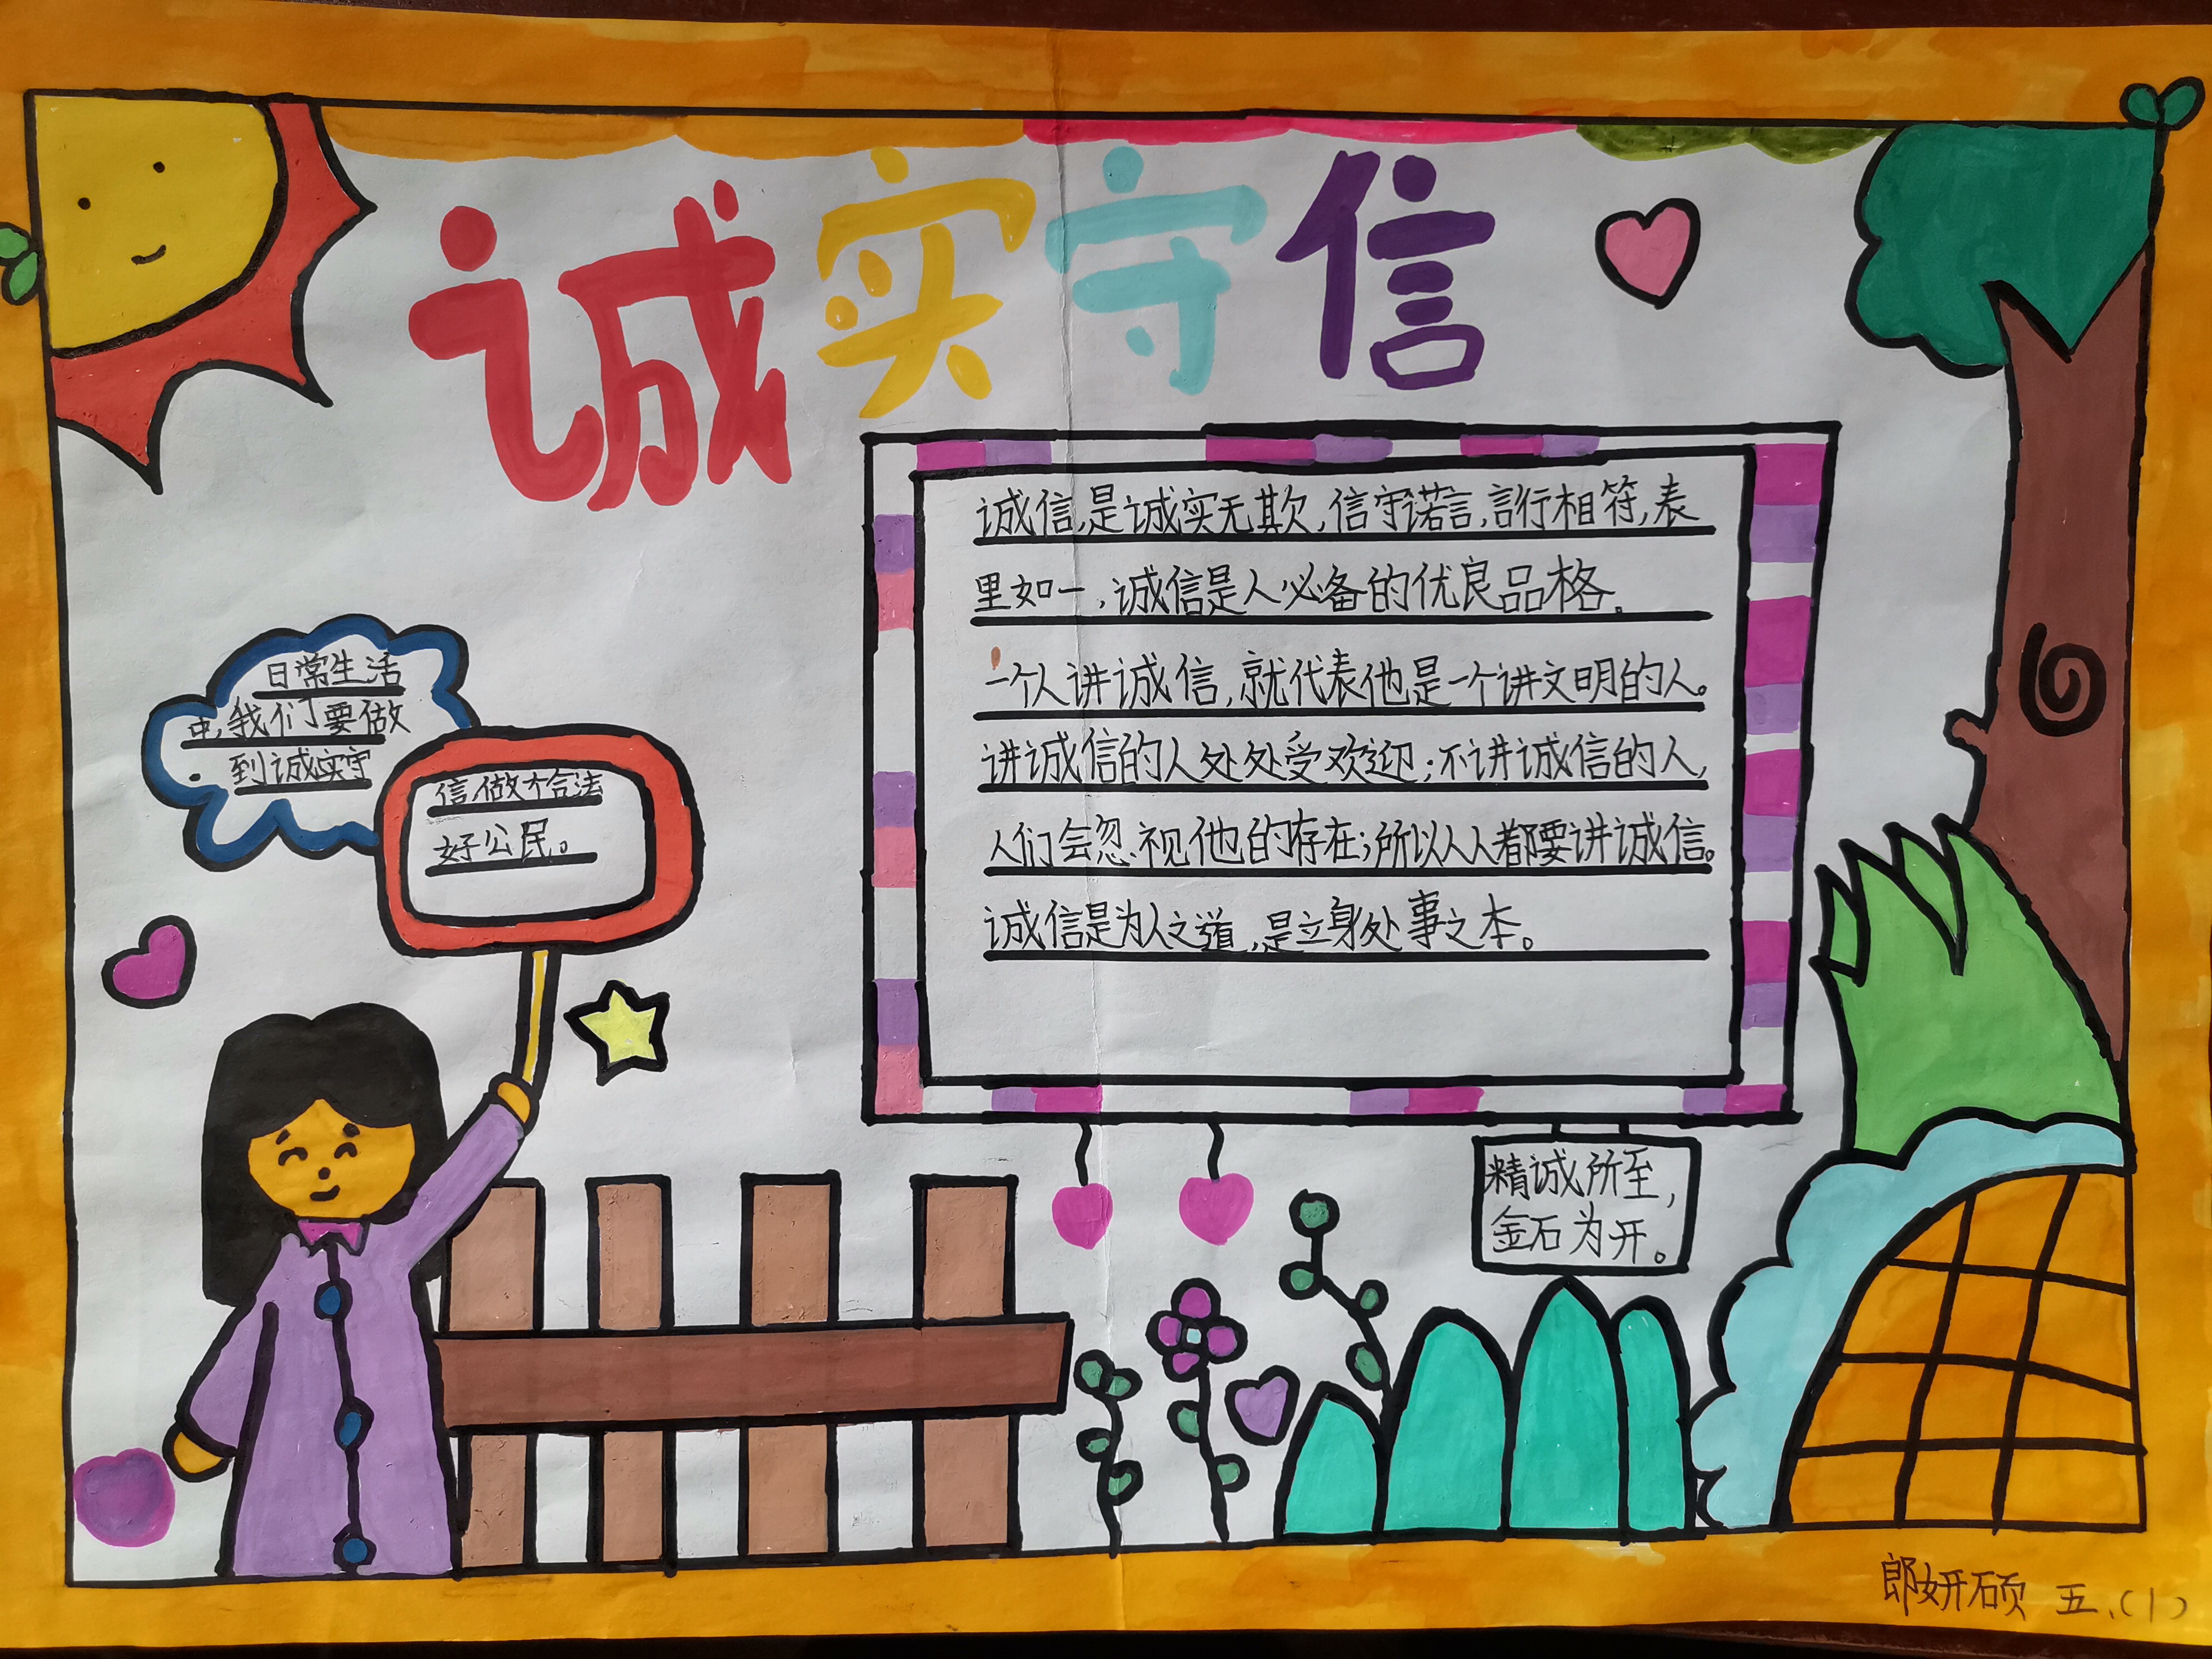 诚实守信
诚信,是诚实无欺,信守诺言,言行相符,表
里如一,诚信是人必备的优良品格。
一个人讲诚信,就代表他是一个讲文明的人。
讲诚信的人处处受欢迎;不讲诚信的人,
人们会忽视他的存在;所以人人都要讲诚信。
诚信是为人之道,是立身处事之本。
日常生活
中,我们要做
到诚实守
信,做个合法
好公民。
精诚所至,
金石为开。
郎妍硕 五、(1)